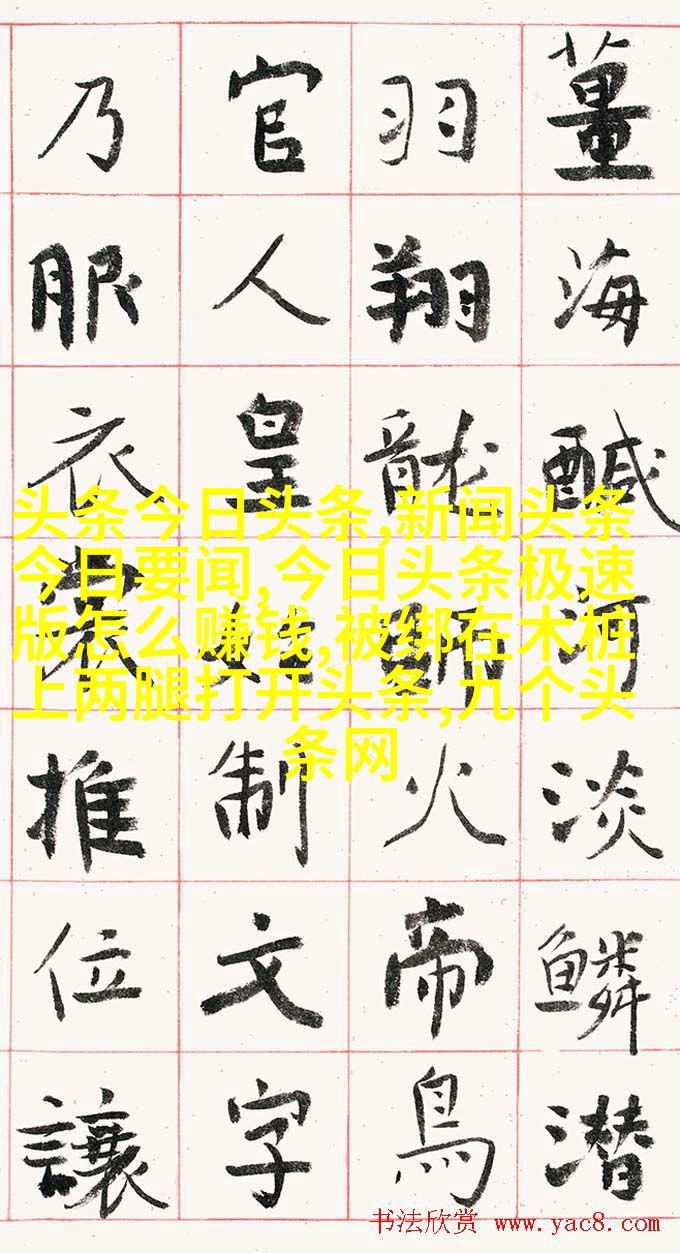 薑海醎河淡鱗潛
羽翔龍師火帝鳥
官人皇始制文字
乃服衣裳推位讓
头条今日头条,新闻头条
今日要闻,今日头条极速
版怎么赚钱,被绑在木桩
上两腿打开头条,九个头
条网
书法欣赏 www.yac8.com